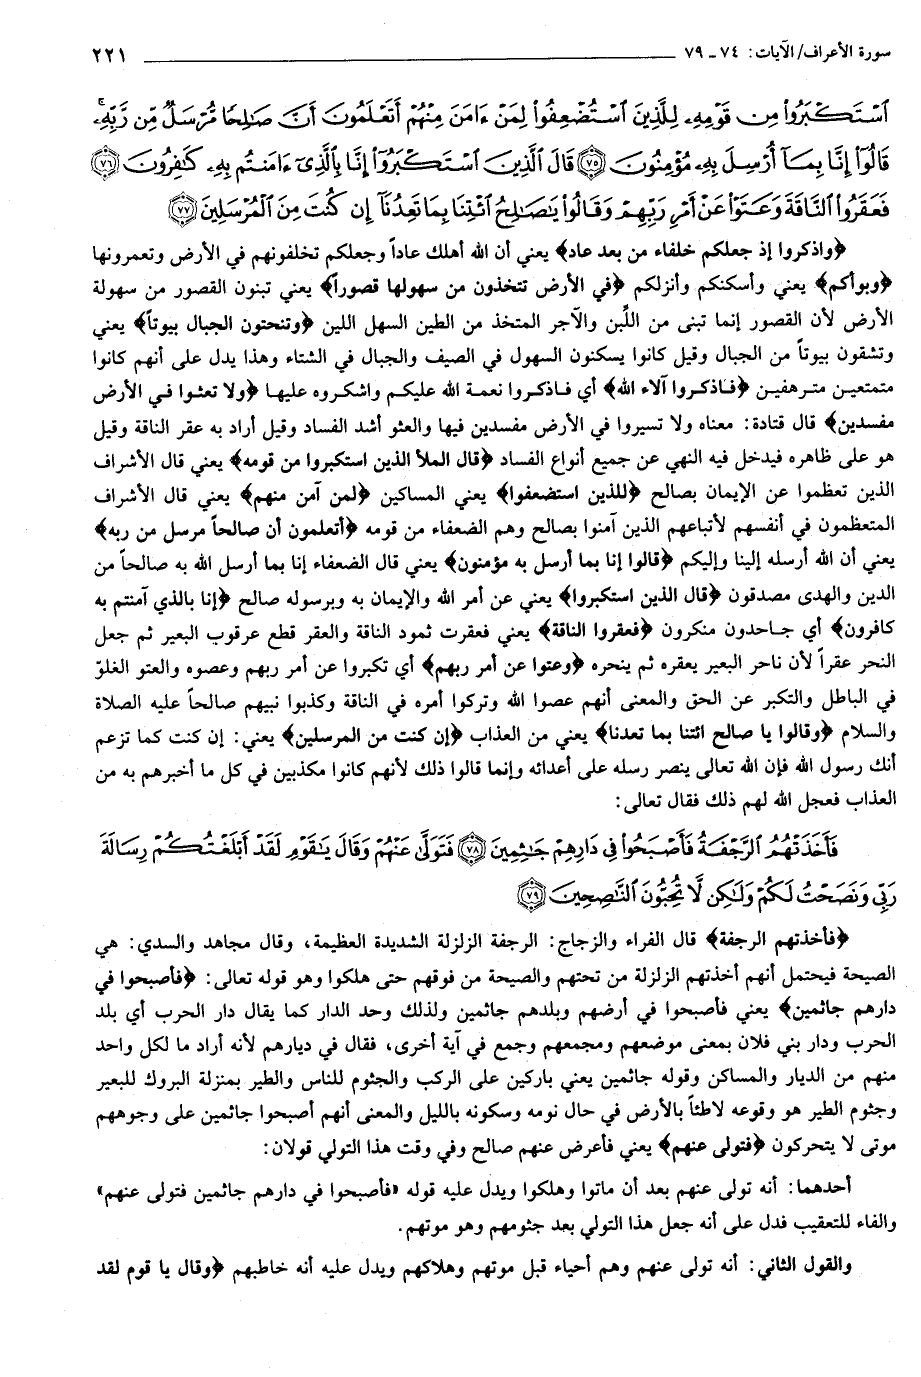 سورة الأعراف/ الآيات: ٧٤ ـ ٧٩ ٢٢١
ٱسْتَكْبَرُواْ مِن قَوْمِهِۦ لِلَّذِينَ ٱسْتُضْعِفُواْ لِمَنْ ءَامَنَ مِنْهُمْ أَتَعْلَمُونَ أَنَّ صَٰلِحًا مُّرْسَلٌ مِّن رَّبِّهِۦۚ
قَالُوٓاْ إِنَّا بِمَآ أُرْسِلَ بِهِۦ مُؤْمِنُونَ ﴿٧٥﴾ قَالَ ٱلَّذِينَ ٱسْتَكْبَرُوٓاْ إِنَّا بِٱلَّذِىٓ ءَامَنتُم بِهِۦ كَٰفِرُونَ ﴿٧٦﴾
فَعَقَرُواْ ٱلنَّاقَةَ وَعَتَوْاْ عَنْ أَمْرِ رَبِّهِمْ وَقَالُواْ يَٰصَٰلِحُ ٱئْتِنَا بِمَا تَعِدُنَآ إِن كُنتَ مِنَ ٱلْمُرْسَلِينَ ﴿٧٧﴾
﴿واذكروا إذ جعلكم خلفاء من بعد عاد﴾ يعني أن الله أهلك عاداً وجعلكم تخلفونهم في الأرض وتعمرونها
﴿وبوأكم﴾ يعني وأسكنكم وأنزلكم ﴿في الأرض تتخذون من سهولها قصوراً﴾ يعني تبنون القصور من سهولة
الأرض لأن القصور إنما تبنى من اللَّبن والآجر المتخذ من الطين السهل اللين ﴿وتنحتون الجبال بيوتاً﴾ يعني
وتشقون بيوتاً من الجبال وقيل كانوا يسكنون السهول في الصيف والجبال في الشتاء وهذا يدل على أنهم كانوا
متمتعين مترفهين ﴿فاذكروا آلاء الله﴾ أي فاذكروا نعمة الله عليكم واشكروه عليها ﴿ولا تعثوا في الأرض
مفسدين﴾ قال قتادة: معناه ولا تسيروا في الأرض مفسدين فيها والعثو أشد الفساد وقيل أراد به عقر الناقة وقيل
هو على ظاهره فيدخل فيه النهي عن جميع أنواع الفساد ﴿قال الملأ الذين استكبروا من قومه﴾ يعني قال الأشراف
الذين تعظموا عن الإيمان بصالح ﴿للذين استضعفوا﴾ يعني المساكين ﴿لمن آمن منهم﴾ يعني قال الأشراف
المتعظمون في أنفسهم لأتباعهم الذين آمنوا بصالح وهم الضعفاء من قومه ﴿أتعلمون أن صالحاً مرسل من ربه﴾
يعني أن الله أرسله إلينا وإليكم ﴿قالوا إنا بما أرسل به مؤمنون﴾ يعني قال الضعفاء إنا بما أرسل الله به صالحاً من
الدين والهدى مصدقون ﴿قال الذين استكبروا﴾ يعني عن أمر الله والإيمان به وبرسوله صالح ﴿إنا بالذي آمنتم به
كافرون﴾ أي جاحدون منكرون ﴿فعقروا الناقة﴾ يعني فعقرت ثمود الناقة والعقر قطع عرقوب البعير ثم جعل
النحر عقراً لأن ناحر البعير يعقره ثم ينحره ﴿وعتوا عن أمر ربهم﴾ أي تكبروا عن أمر ربهم وعصوه والعتو الغلوّ
في الباطل والتكبر عن الحق والمعنى أنهم عصوا الله وتركوا أمره في الناقة وكذبوا نبيهم صالحاً عليه الصلاة
والسلام ﴿وقالوا يا صالح ائتنا بما تعدنا﴾ يعني من العذاب ﴿إن كنت من المرسلين﴾ يعني: إن كنت كما تزعم
أنك رسول الله فإن الله تعالى ينصر رسله على أعدائه وإنما قالوا ذلك لأنهم كانوا مكذبين في كل ما أخبرهم به من
العذاب فعجل الله لهم ذلك فقال تعالى:
فَأَخَذَتْهُمُ ٱلرَّجْفَةُ فَأَصْبَحُواْ فِى دَارِهِمْ جَٰثِمِينَ ﴿٧٨﴾ فَتَوَلَّىٰ عَنْهُمْ وَقَالَ يَٰقَوْمِ لَقَدْ أَبْلَغْتُكُمْ رِسَالَةَ
رَبِّى وَنَصَحْتُ لَكُمْ وَلَٰكِن لَّا تُحِبُّونَ ٱلنَّٰصِحِينَ ﴿٧٩﴾
﴿فأخذتهم الرجفة﴾ قال الفراء والزجاج: الرجفة الزلزلة الشديدة العظيمة، وقال مجاهد والسدي: هي
الصيحة فيحتمل أنهم أخذتهم الزلزلة من تحتهم والصيحة من فوقهم حتى هلكوا وهو قوله تعالى: ﴿فأصبحوا في
دارهم جاثمين﴾ يعني فأصبحوا في أرضهم وبلدهم جاثمين ولذلك وحد الدار كما يقال دار الحرب أي بلد
الحرب ودار بني فلان بمعنى موضعهم ومجمعهم وجمع في آية أخرى، فقال في ديارهم لأنه أراد ما لكل واحد
منهم من الديار والمساكن وقوله جاثمين يعني باركين على الركب والجثوم للناس والطير بمنزلة البروك للبعير
وجثوم الطير هو وقوعه لاطئاً بالأرض في حال نومه وسكونه بالليل والمعنى أنهم أصبحوا جاثمين على وجوههم
موتى لا يتحركون ﴿فتولى عنهم﴾ يعني فأعرض عنهم صالح وفي وقت هذا التولي قولان:
أحدهما: أنه تولى عنهم بعد أن ماتوا وهلكوا ويدل عليه قوله «فأصبحوا في دارهم جاثمين فتولى عنهم»
والفاء للتعقيب فدل على أنه جعل هذا التولي بعد جثومهم وهو موتهم.
والقول الثاني: أنه تولى عنهم وهم أحياء قبل موتهم وهلاكهم ويدل عليه أنه خاطبهم ﴿وقال يا قوم لقد